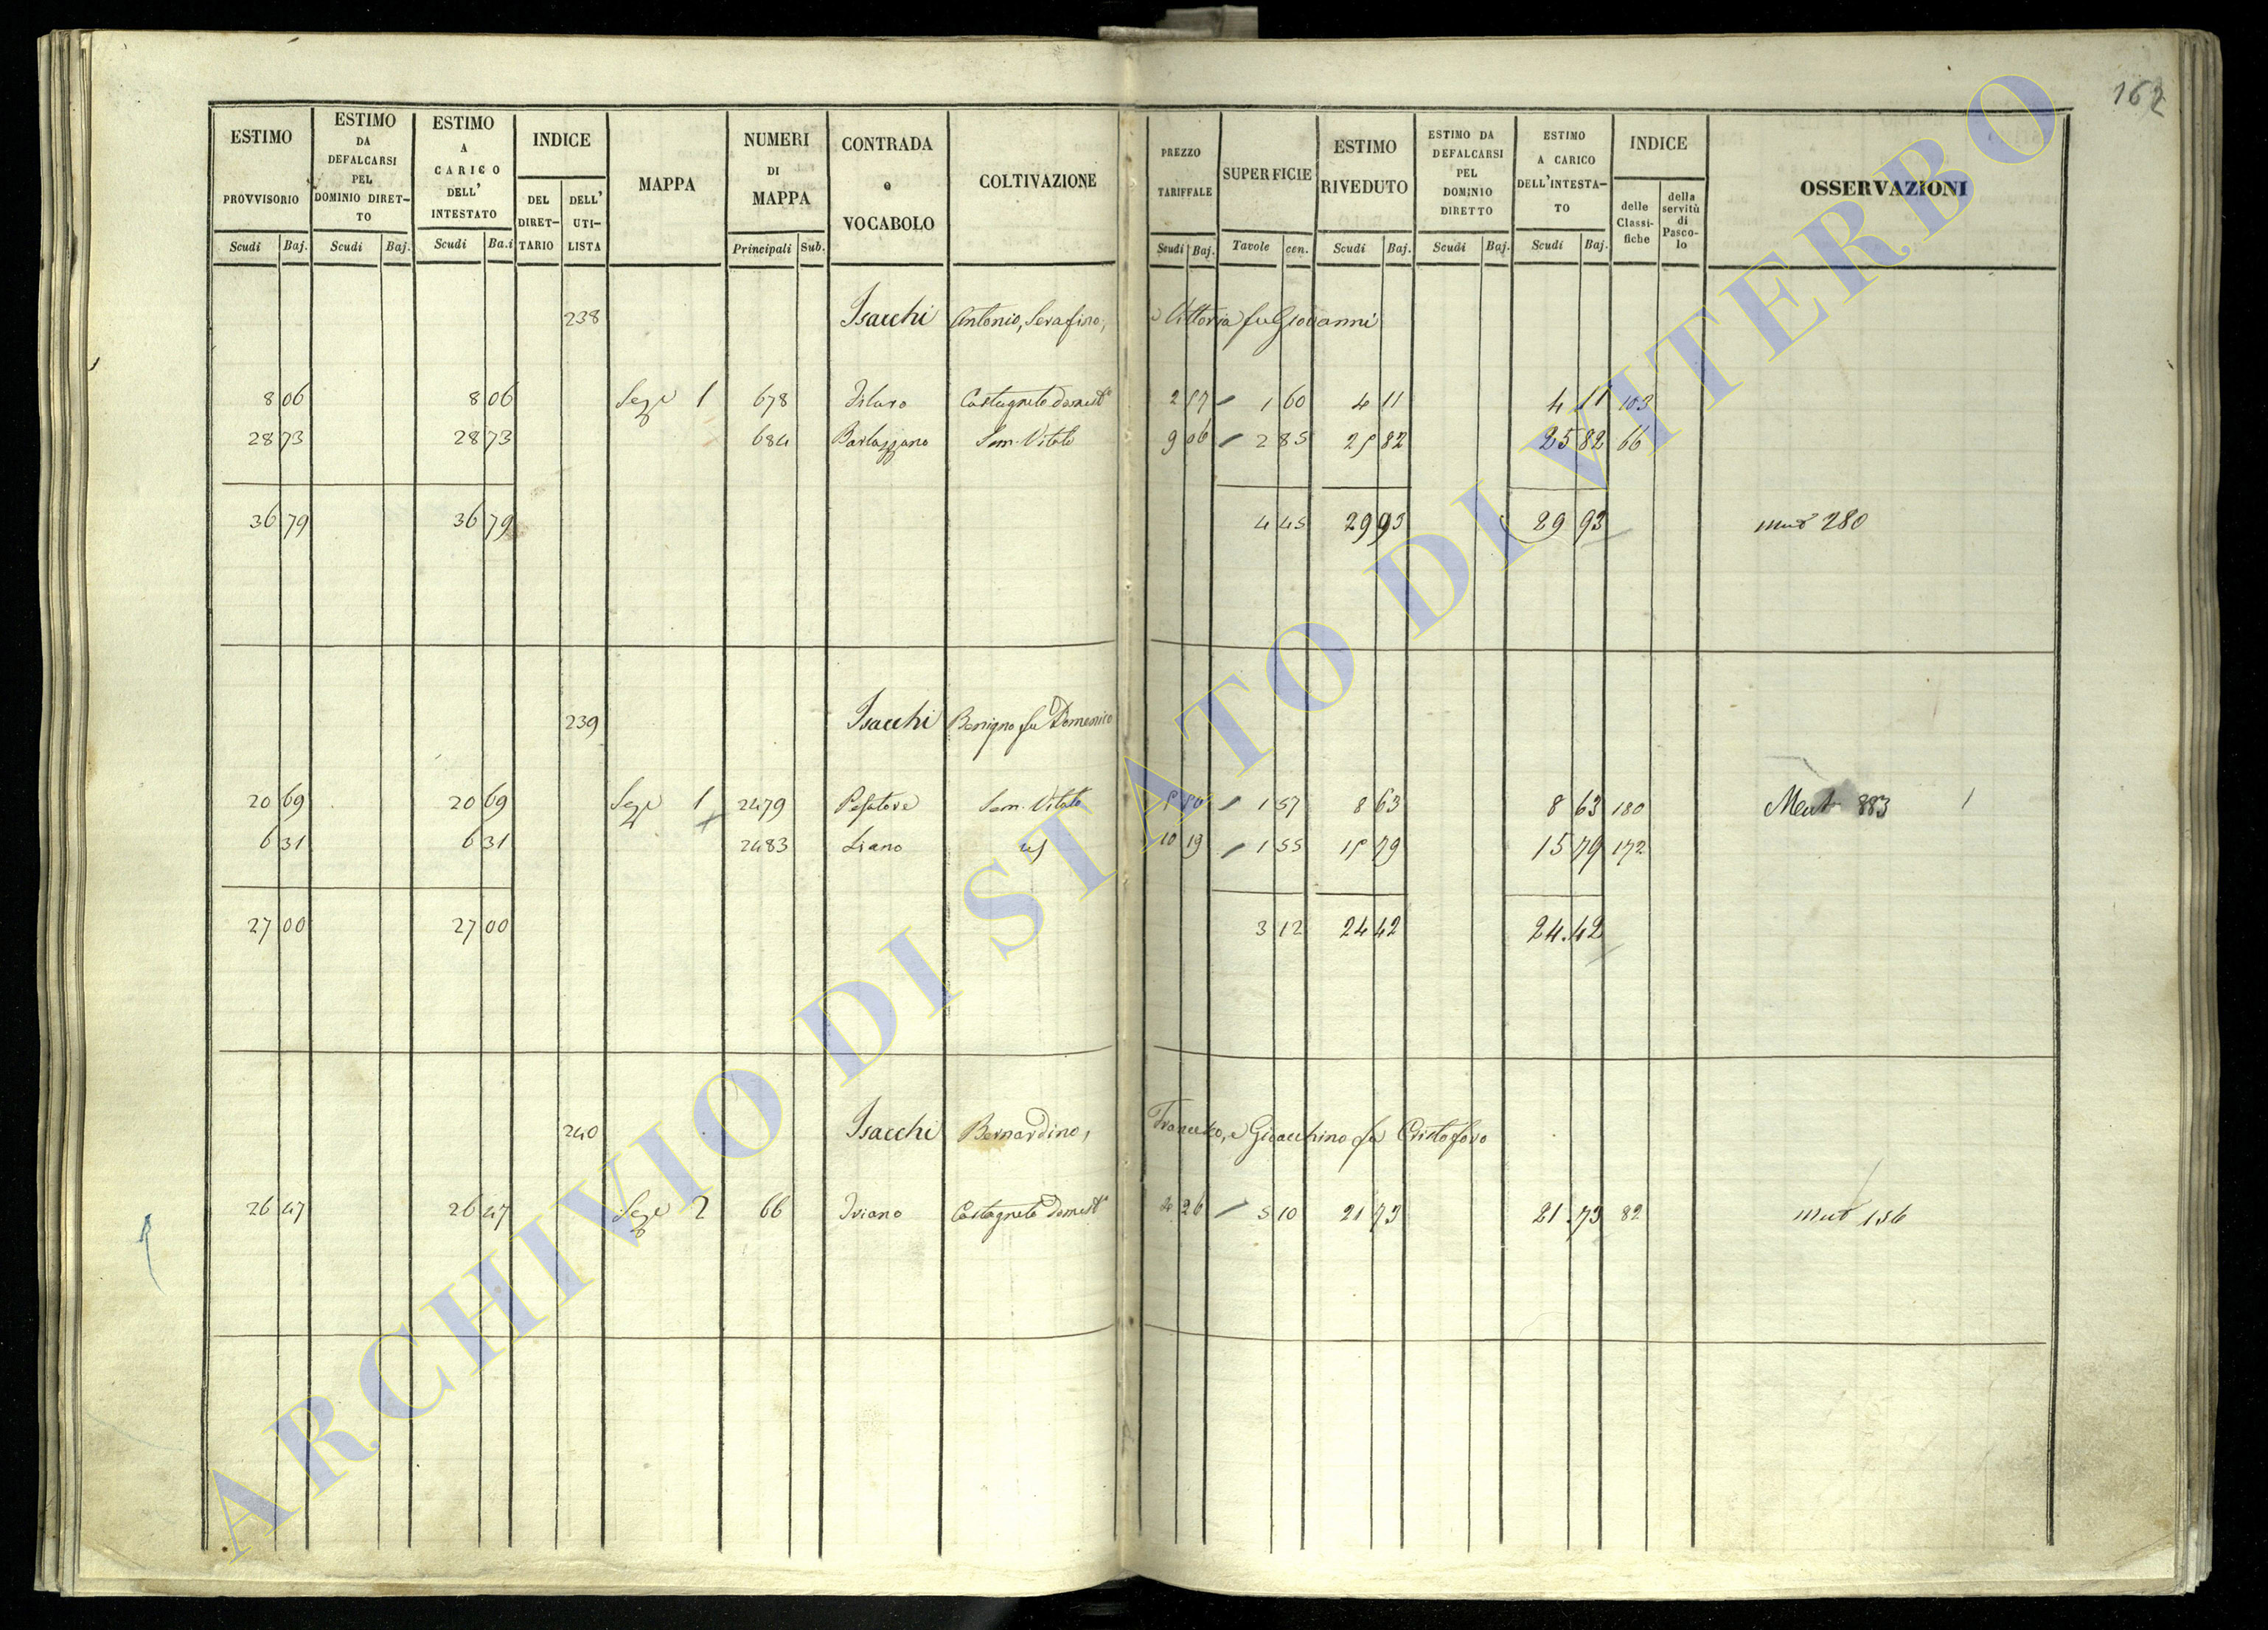 162
ESTIMO PROVVISORIO
Scudi Baj.
ESTIMO DA DEFALCARSI PEL DOMINIO DIRET-TO
Scudi Baj.
ESTIMO A CARICO DELL' INTESTATO
Scudi Ba.i
INDICE
DEL DIRET-TARIO
DELL' UTI-LISTA
MAPPA
NUMERI DI MAPPA
Principali Sub.
CONTRADA o VOCABOLO
COLTIVAZIONE
PREZZO TARIFFALE
Scudi Baj.
SUPERFICIE
Tavole cen.
ESTIMO RIVEDUTO
Scudi Baj.
ESTIMO DA DEFALCARSI PEL DOMINIO DIRETTO
Scudi Baj.
ESTIMO A CARICO DELL'INTESTA-TO
Scudi Baj.
INDICE
delle Classi-fiche
della servitù di Pasco-lo
OSSERVAZIONI
238 Isacchi Antonio, Serafino, e Vittoria fu Giovanni
8 06 8 06 Seze 1 678 Castagneto domest° 2 57 1 60 4 11 4 11 103
28 73 28 73 684 Sem. Vitato 9 06 2 85 25 82 25 82 66
36 79 36 79 4 45 29 93 29 93 mut 280
239 Isacchi Benigno fu Domenico
20 69 20 69 Seze 1 2479 Sem. Vitato 5 50 1 57 8 63 8 63 180 Mut 883 1
6 31 6 31 2483 Liano 10 19 1 55 15 79 15 79 172
27 00 27 00 3 12 24 42 24.42
240 Isacchi Bernardino, Francesco, e Gioacchino fu Cristoforo
26 47 26 47 Seze 2 66 Iviano Castagneto domest° 4 26 5 10 21 73 21.73 82 mut 156
ARCHIVIO DI STATO DI VITERBO